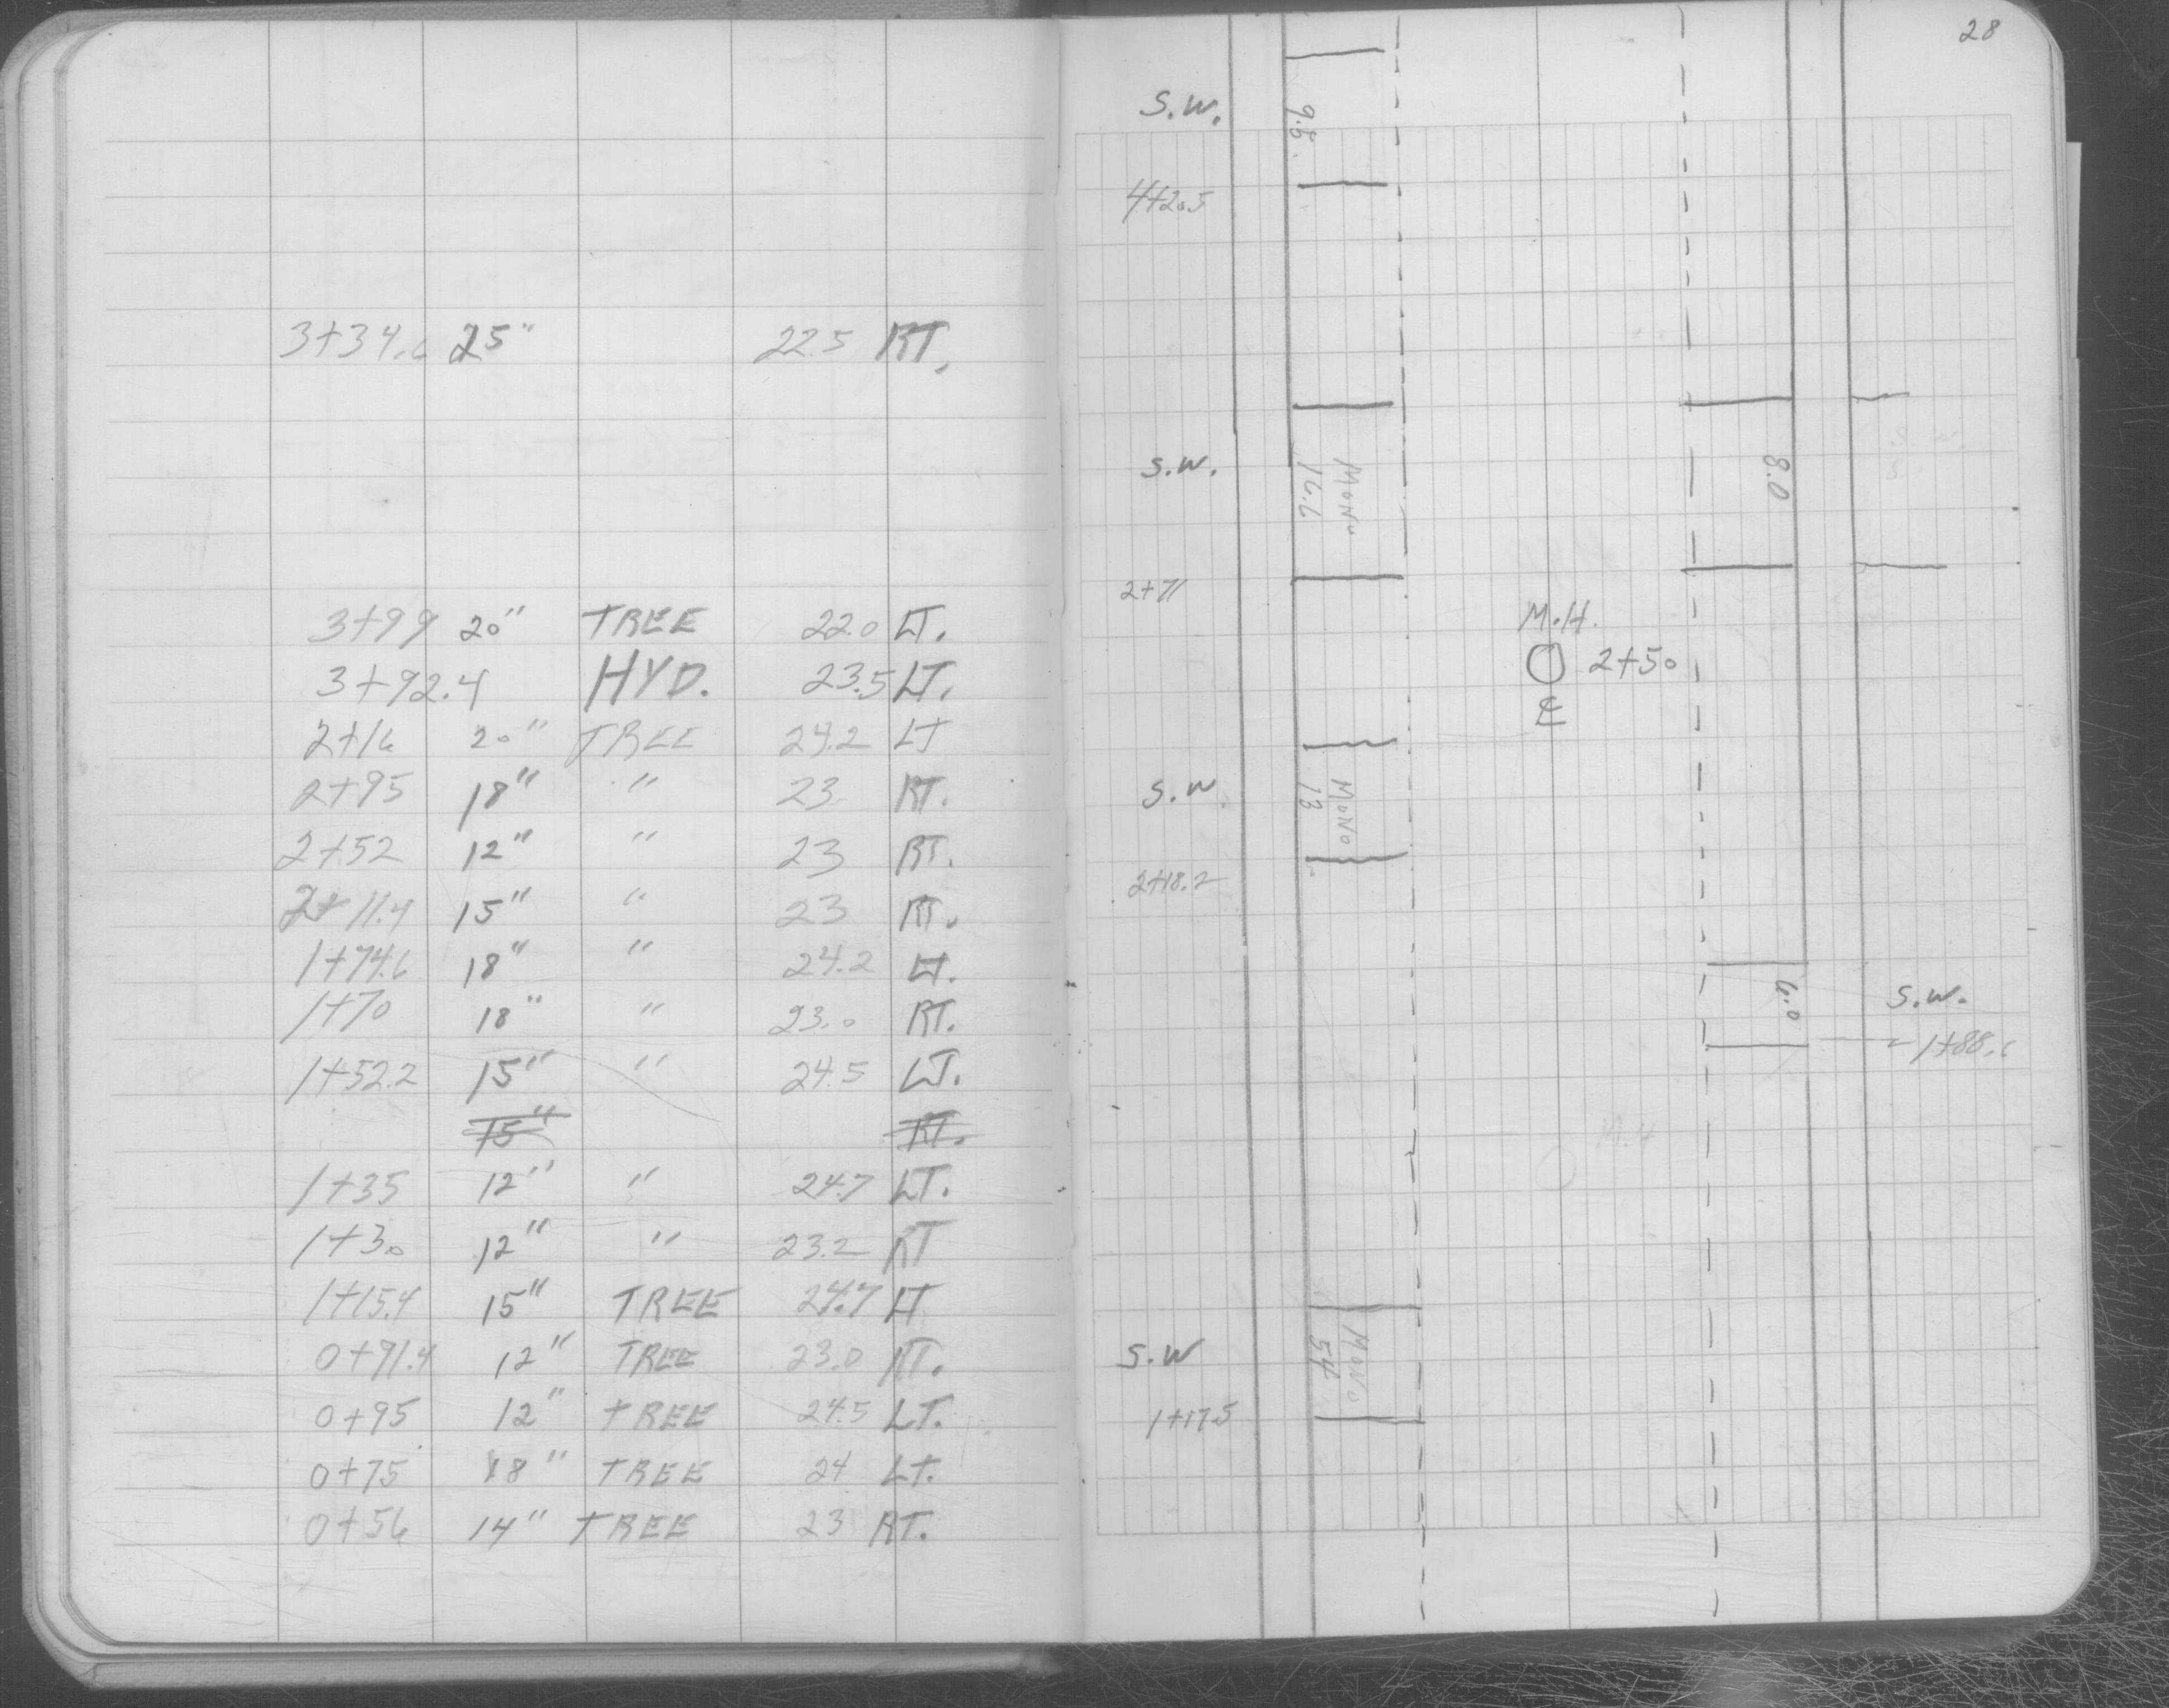 3+34.6 25" 22.5 RT.
3+99 20" TREE 22.0 LT.
3+92.4 HYD. 23.5 LT.
2+16 20" TREE 24.2 LT
2+95 18" " 23 RT.
2+52 12" " 23 RT.
2+11.4 15" " 23 RT.
1+74.6 18" " 24.2 LT.
1+70 18" " 23.0 RT.
1+52.2 15" " 24.5 LT.
15" RT.
1+35 12" " 24.7 LT.
1+30 12" " 23.2 RT
1+15.4 15" TREE 24.7 LT
0+91.4 12" TREE 23.0 RT.
0+95 12" TREE 24.5 LT.
0+75 18" TREE 24 LT.
0+56 14" TREE 23 RT.
28
S.W.
9.8
4+20.5
S.W.
MONO
16.6
8.0
2+71
M.H.
2+50
S.W.
MONO
13
2+18.2
6.0
S.W.
1+88.6
M.H
S.W
MONO
1+17.5